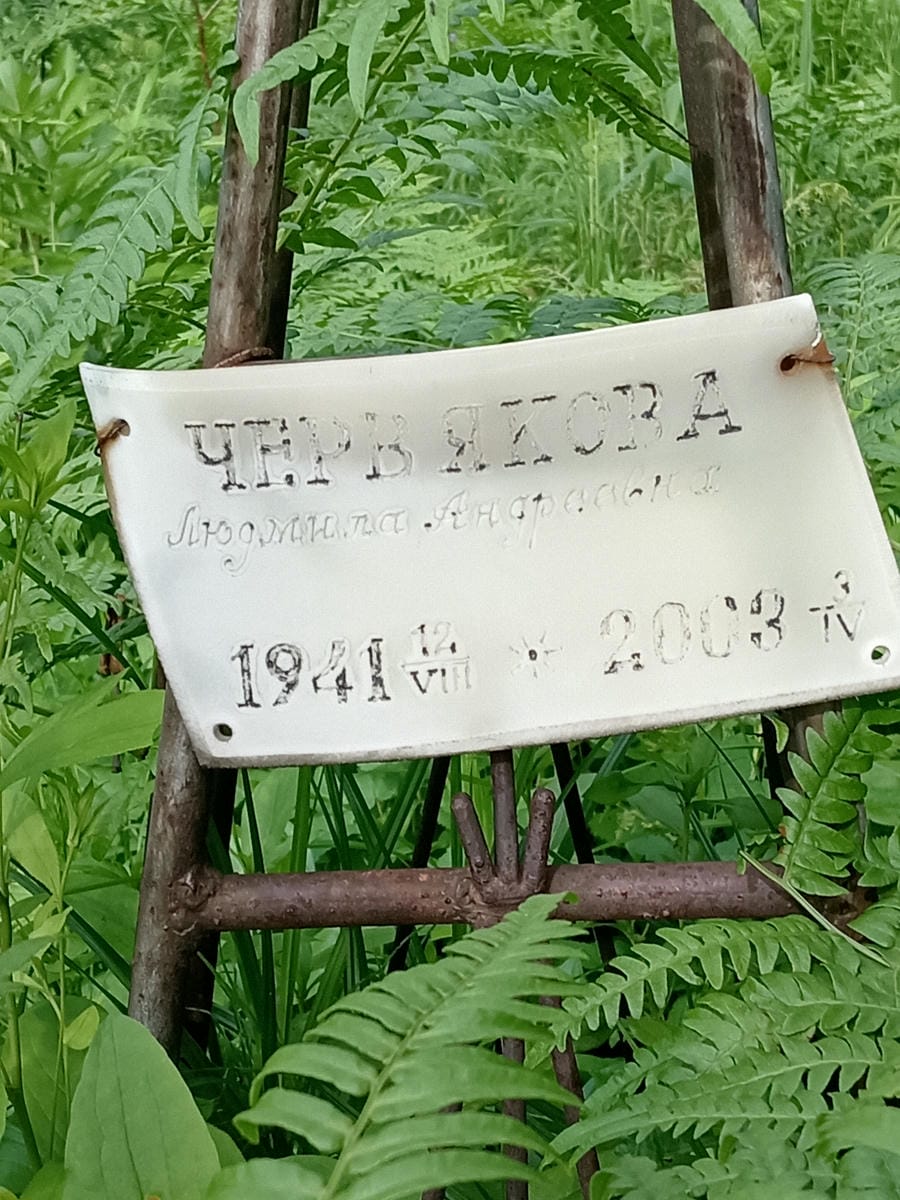 ЧЕРВЯКОВА
Людмила Андреевна
1941 12/VIII * 2003 3/IV